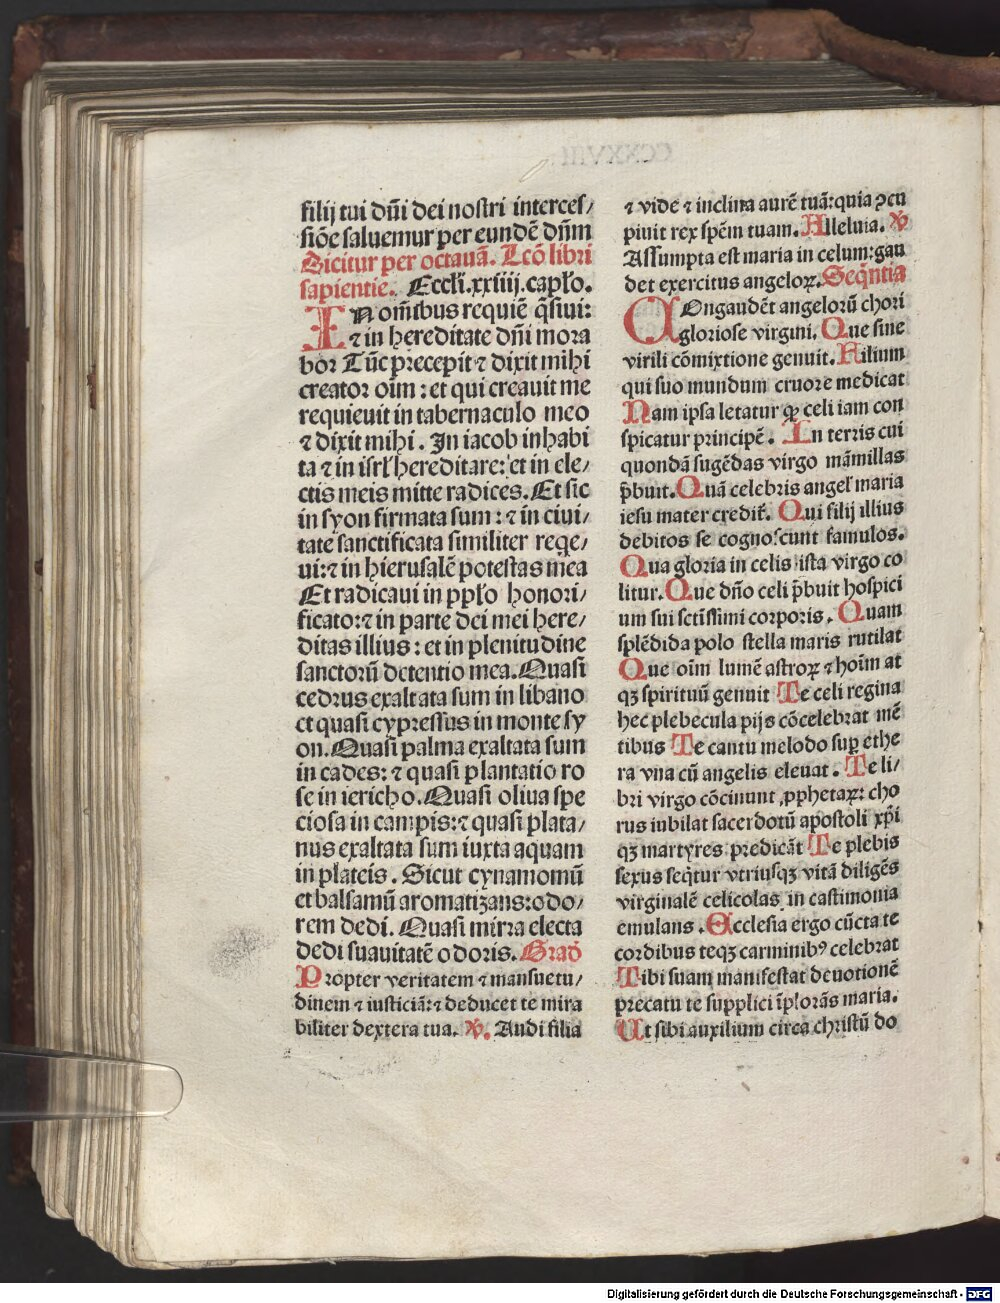 filij tui dñi dei nostri interces/
siõe saluemur per eundē dñm
Dicitur per octauā. Lcõ libri
sapientie. Eccli̅.xxiiij.capło.
IN om̄ibus requiē q̄siui:
⁊ in hereditate dñi mora
bor Tūc precepit ⁊ dixit mihi
creator oim̄: et qui creauit me
requieuit in tabernaculo meo
⁊ dixit mihi. In iacob inhabi
ta ⁊ in isrł hereditare: et in ele/
ctis meis mitte radices. Et sic
in syon firmata sum: ⁊ in ciui/
tate sanctificata similiter reqe/
ui: ⁊ in hierusalē potestas mea
Et radicaui in ppło honori/
ficato: ⁊ in parte dei mei here/
ditas illius: et in plenitudine
sanctorū detentio mea. Quasi
cedrus exaltata sum in libano
et quasi cypressus in monte sy
on. Quasi palma exaltata sum
in cades: ⁊ quasi plantatio ro
se in iericho. Quasi oliua spe
ciosa in campis: ⁊ quasi plata/
nus exaltata sum iuxta aquam
in plateis. Sicut cynamomū
et balsamū aromatizans: odo/
rem dedi. Quasi mirra electa
dedi suauitatē odoris. Grad̄
Propter veritatem ⁊ mansuetu/
dinem ⁊ iusticiā: ⁊ deducet te mira
biliter dextera tua. ℣. Audi filia
⁊ vide ⁊ inclina aurē tuā: quia ↄcu
piuit rex spēm tuam. Alleluia. ℣
Assumpta est maria in celum: gau
det exercitus angeloꝝ. Seq̄ntia
COngaudēt angelorū chori
gloriose virgini. Que sine
virili cōmixtione genuit. Filium
qui suo mundum cruore medicat
Nam ipsa letatur ꝙ celi iam con
spicatur principē. In terris cui
quondā sugēdas virgo māmillas
p̄buit. Quā celebris angeł maria
iesu mater credit̄. Qui filij illius
debitos se cognoscunt famulos.
Qua gloria in celis ista virgo co
litur. Que dño celi p̄buit hospici
um sui sctīssimi corporis. Quam
splēdida polo stella maris rutilat
Que oim̄ lumē astroꝝ ⁊ hoim̄ at
qꝫ spirituū genuit Te celi regina
hec plebecula pijs cōcelebrat mē
tibus Te cantu melodo sup̄ ethe
ra vna cū angelis eleuat. Te li/
bri virgo cōcinunt ꝓphetaꝝ: cho
rus iubilat sacerdotū apostoli xp̄i
qꝫ martyres predicāt Te plebis
sexus seq̄tur vtriusqꝫ vitā diligēs
virginalē celicolas in castimonia
emulans. Ecclesia ergo cūcta te
cordibus teqꝫ carminibꝰ celebrat
Tibi suam manifestat deuotionē
precatu te supplici īplorās maria.
Ut sibi auxilium circa christū do
Digitalisierung gefördert durch die Deutsche Forschungsgemeinschaft - DFG